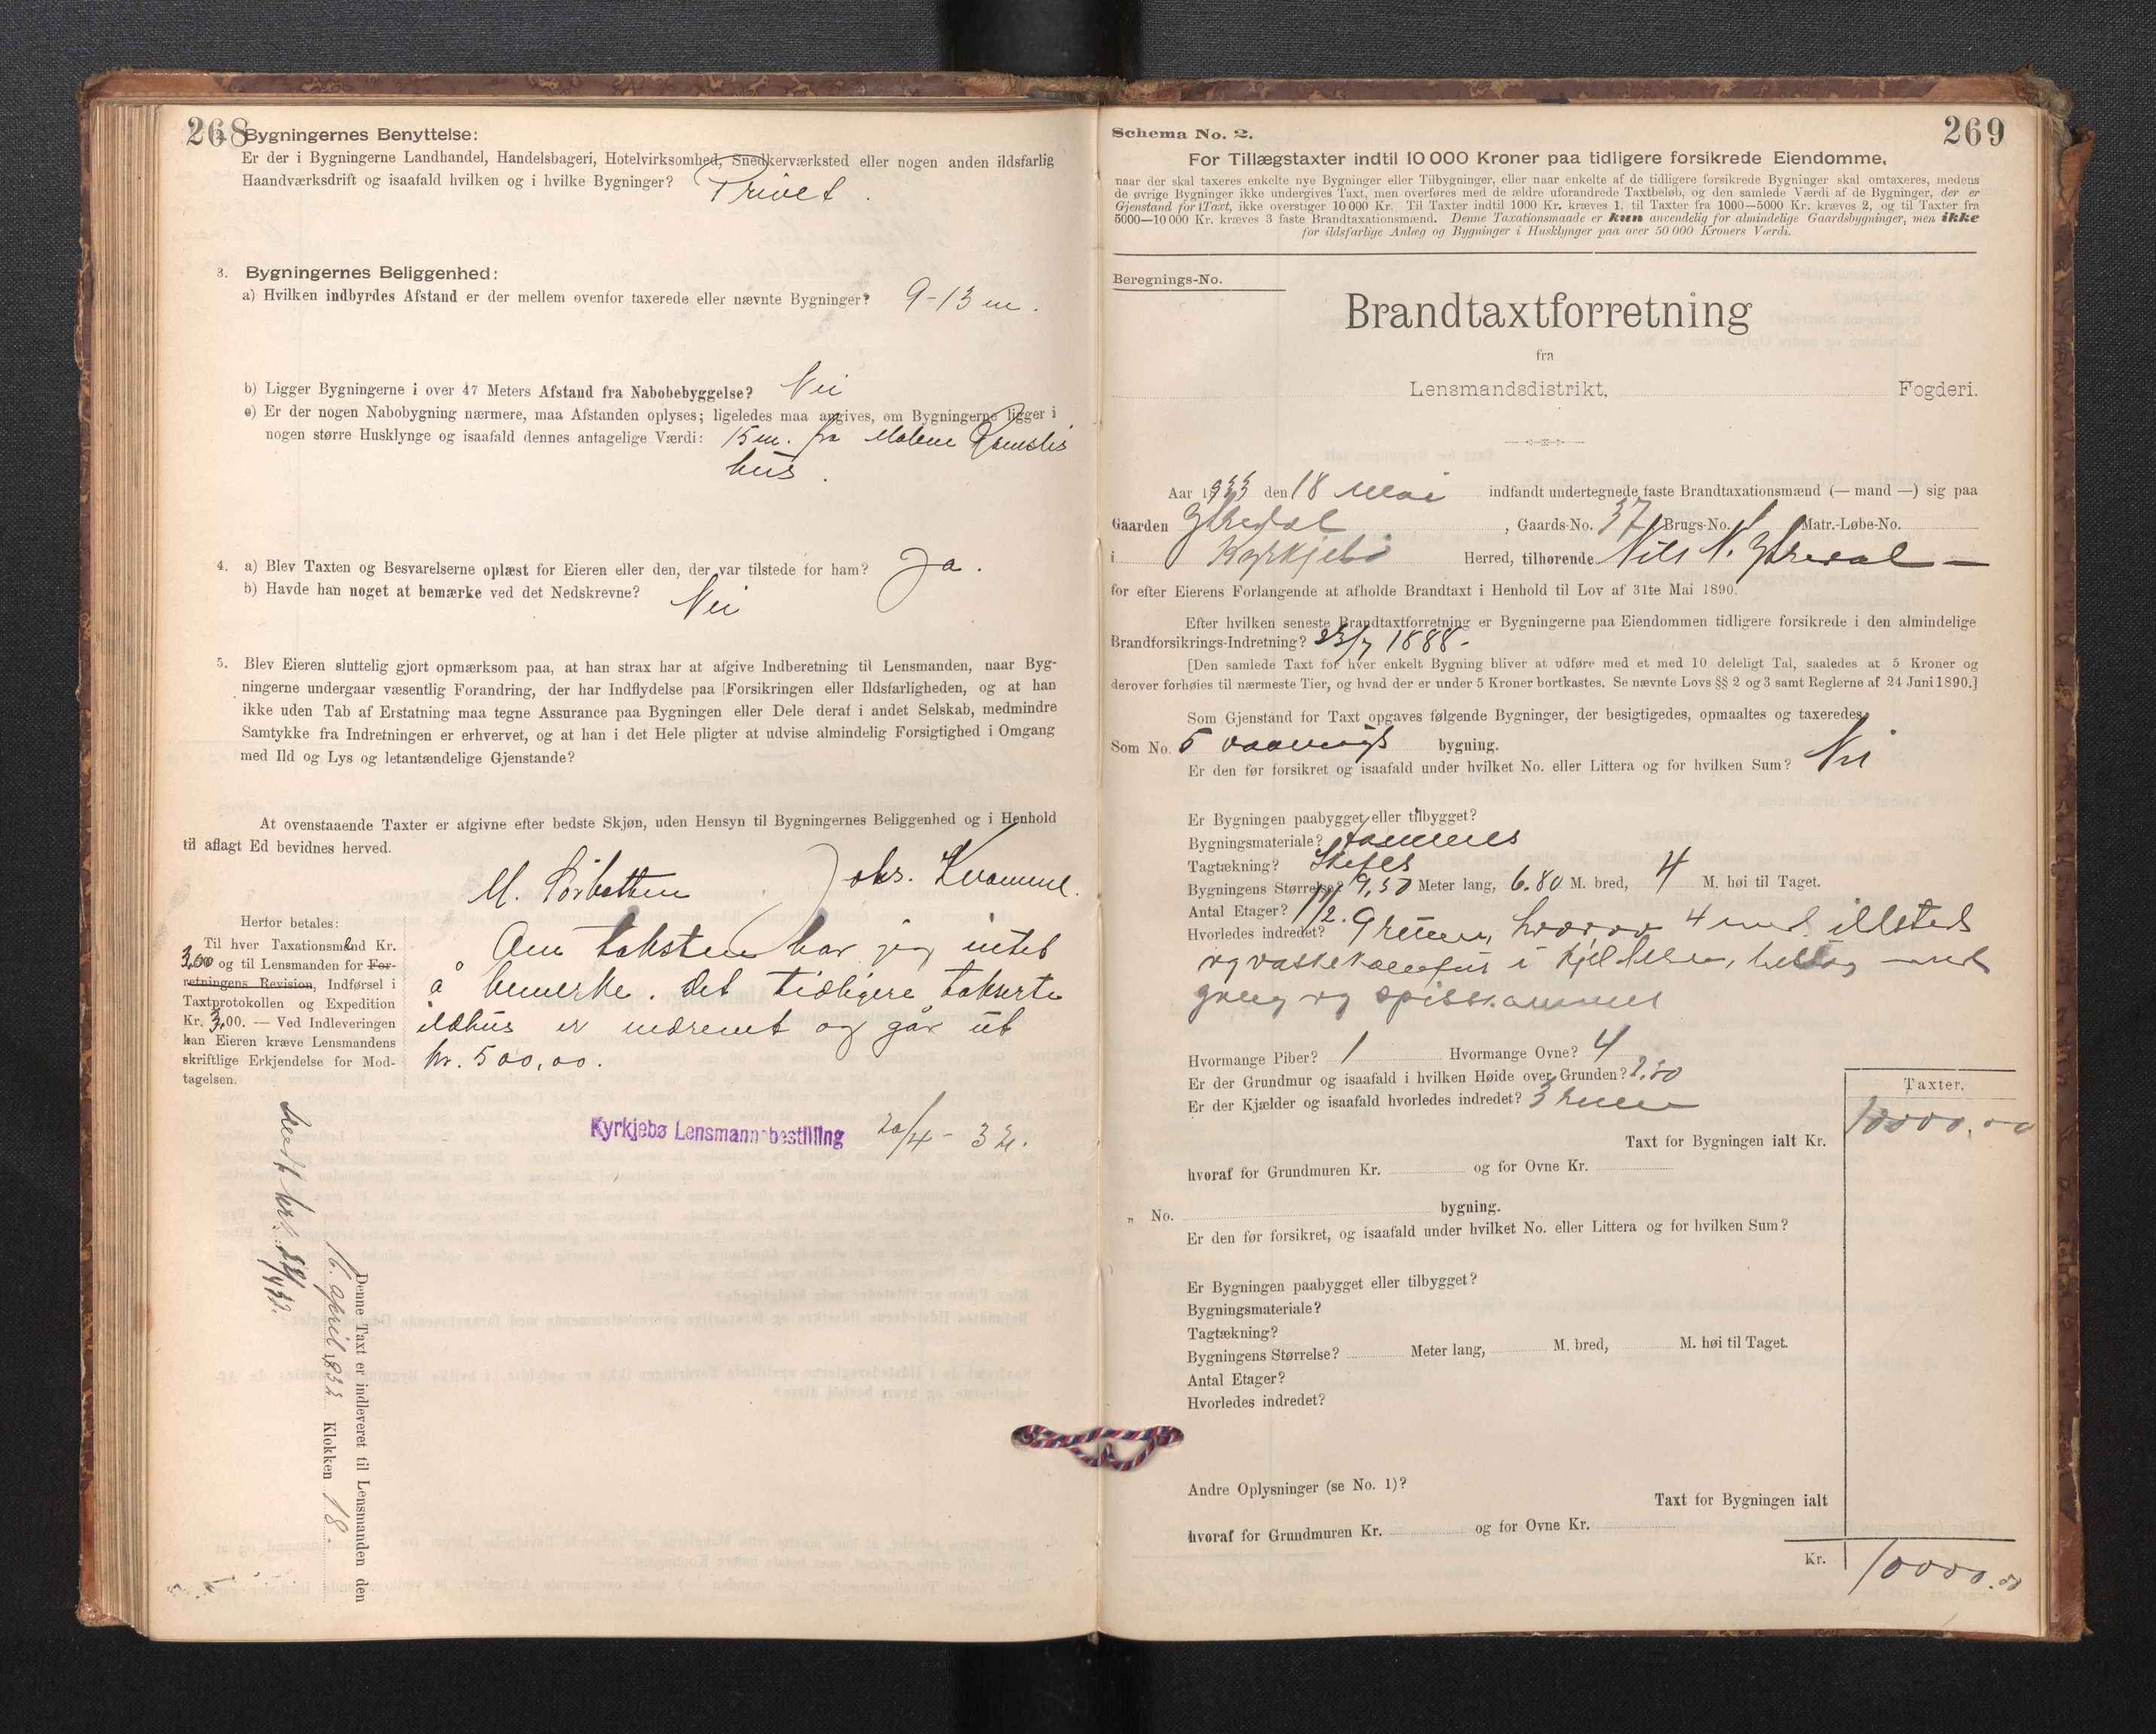 268
2. Bygningernes Benyttelse:
Er der i Bygningerne Landhandel, Handelsbageri, Hotelvirksomhed, Snedkerværksted eller nogen anden ildsfarlig
Haandværksdrift og isaafald hvilken og i hvilke Bygninger? Privet.
3. Bygningernes Beliggenhed:
a) Hvilken indbyrdes Afstand er der mellem ovenfor taxerede eller nævnte Bygninger? 9-13 m.
b) Ligger Bygningerne i over 47 Meters Afstand fra Nabobebyggelse? Nei
c) Er der nogen Nabobygning nærmere, maa Afstanden oplyses; ligeledes maa angives, om Bygningerne ligger i
nogen større Husklynge og isaafald dennes antagelige Værdi: 15 m. fra Malene
hus.
4. a) Blev Taxten og Besvarelserne oplæst for Eieren eller den, der var tilstede for ham? Ja.
b) Havde han noget at bemærke ved det Nedskrevne? Nei
5. Blev Eieren sluttelig gjort opmærksom paa, at han strax har at afgive Indberetning til Lensmanden, naar Byg-
ningerne undergaar væsentlig Forandring, der har Indflydelse paa Forsikringen eller Ildsfarligheden, og at han
ikke uden Tab af Erstatning maa tegne Assurance paa Bygningen eller Dele deraf i andet Selskab, medmindre
Samtykke fra Indretningen er erhvervet, og at han i det Hele pligter at udvise almindelig Forsigtighed i Omgang
med Ild og Lys og letantændelige Gjenstande?
At ovenstaaende Taxter er afgivne efter bedste Skjøn, uden Hensyn til Bygningernes Beliggenhed og i Henhold
til aflagt Ed bevidnes herved.
M. Sörbotten Johs. Kvamme.
Herfor betales:
Til hver Taxationsmand Kr.
3,00 og til Lensmanden for For-
retningens Revision, Indførsel i
Taxtprotokollen og Expedition
Kr. 3,00. — Ved Indleveringen
kan Eieren kræve Lensmandens
skriftlige Erkjendelse for Mod-
tagelsen.
Om taksten har jeg intet
å bemerke. Det tidligere takserte
ildhus er nedrevet og går ut
kr. 500,00.
Kyrkjebø Lensmannsbestilling 20/4 - 32.
Denne Taxt er indleveret til Lensmanden den
16. april 1932 Klokken 18.
269
Schema No. 2.
For Tillægstaxter indtil 10 000 Kroner paa tidligere forsikrede Eiendomme,
naar der skal taxeres enkelte nye Bygninger eller Tilbygninger, eller naar enkelte af de tidligere forsikrede Bygninger skal omtaxeres, medens
de øvrige Bygninger ikke undergives Taxt, men overføres med de ældre uforandrede Taxtbeløb, og den samlede Værdi af de Bygninger, der er
Gjenstand for Taxt, ikke overstiger 10 000 Kr. Til Taxter indtil 1000 Kr. kræves 1, til Taxter fra 1000—5000 Kr. kræves 2, og til Taxter fra
5000—10 000 Kr. kræves 3 faste Brandtaxationsmænd. Denne Taxationsmaade er kun anvendelig for almindelige Gaardsbygninger, men ikke
for ildsfarlige Anlæg og Bygninger i Husklynger paa over 50 000 Kroners Værdi.
Beregnings-No.
Brandtaxtforretning
fra
Lensmandsdistrikt, Fogderi.
Aar 1933 den 18 Mai indfandt undertegnede faste Brandtaxationsmænd (— mand —) sig paa
Gaarden Ytredal, Gaards-No. 37 Brugs-No. 1 Matr.-Løbe-No.
i Kyrkjebø Herred, tilhørende Nils N. Ytredal —
for efter Eierens Forlangende at afholde Brandtaxt i Henhold til Lov af 31te Mai 1890.
Efter hvilken seneste Brandtaxtforretning er Bygningerne paa Eiendommen tidligere forsikrede i den almindelige
Brandforsikrings-Indretning? 23/7 1888.
[Den samlede Taxt for hver enkelt Bygning bliver at udføre med et med 10 deleligt Tal, saaledes at 5 Kroner og
derover forhøies til nærmeste Tier, og hvad der er under 5 Kroner bortkastes. Se nævnte Lovs §§ 2 og 3 samt Reglerne af 24 Juni 1890.]
Som Gjenstand for Taxt opgaves følgende Bygninger, der besigtigedes, opmaaltes og taxeredes:
Som No. 5 vaanings bygning.
Er den før forsikret og isaafald under hvilket No. eller Littera og for hvilken Sum? Nei
Er Bygningen paabygget eller tilbygget?
Bygningsmateriale? tømmer
Tagtækning? Skifer
Bygningens Størrelse? 9,50 Meter lang, 6.80 M. bred, 4 M. høi til Taget.
Antal Etager? 1 1/2.
Hvorledes indredet? 9 rum, hvorav 4 med illsted
og vaskekamfur i kjelleren, med
gang og spiskammer
Hvormange Piber? 1 Hvormange Ovne? 4
Er der Grundmur og isaafald i hvilken Høide over Grunden? 2.50
Er der Kjælder og isaafald hvorledes indredet? 3 rum
Taxter.
Taxt for Bygningen ialt Kr. 10000,00
hvoraf for Grundmuren Kr. og for Ovne Kr.
„ No. bygning.
Er den før forsikret, og isaafald under hvilket No. eller Littera og for hvilken Sum?
Er Bygningen paabygget eller tilbygget?
Bygningsmateriale?
Tagtækning?
Bygningens Størrelse? Meter lang, M. bred, M. høi til Taget.
Antal Etager?
Hvorledes indredet?
Andre Oplysninger (se No. 1)?
Taxt for Bygningen ialt
hvoraf for Grundmuren Kr. og for Ovne Kr.
Kr. 10000.00